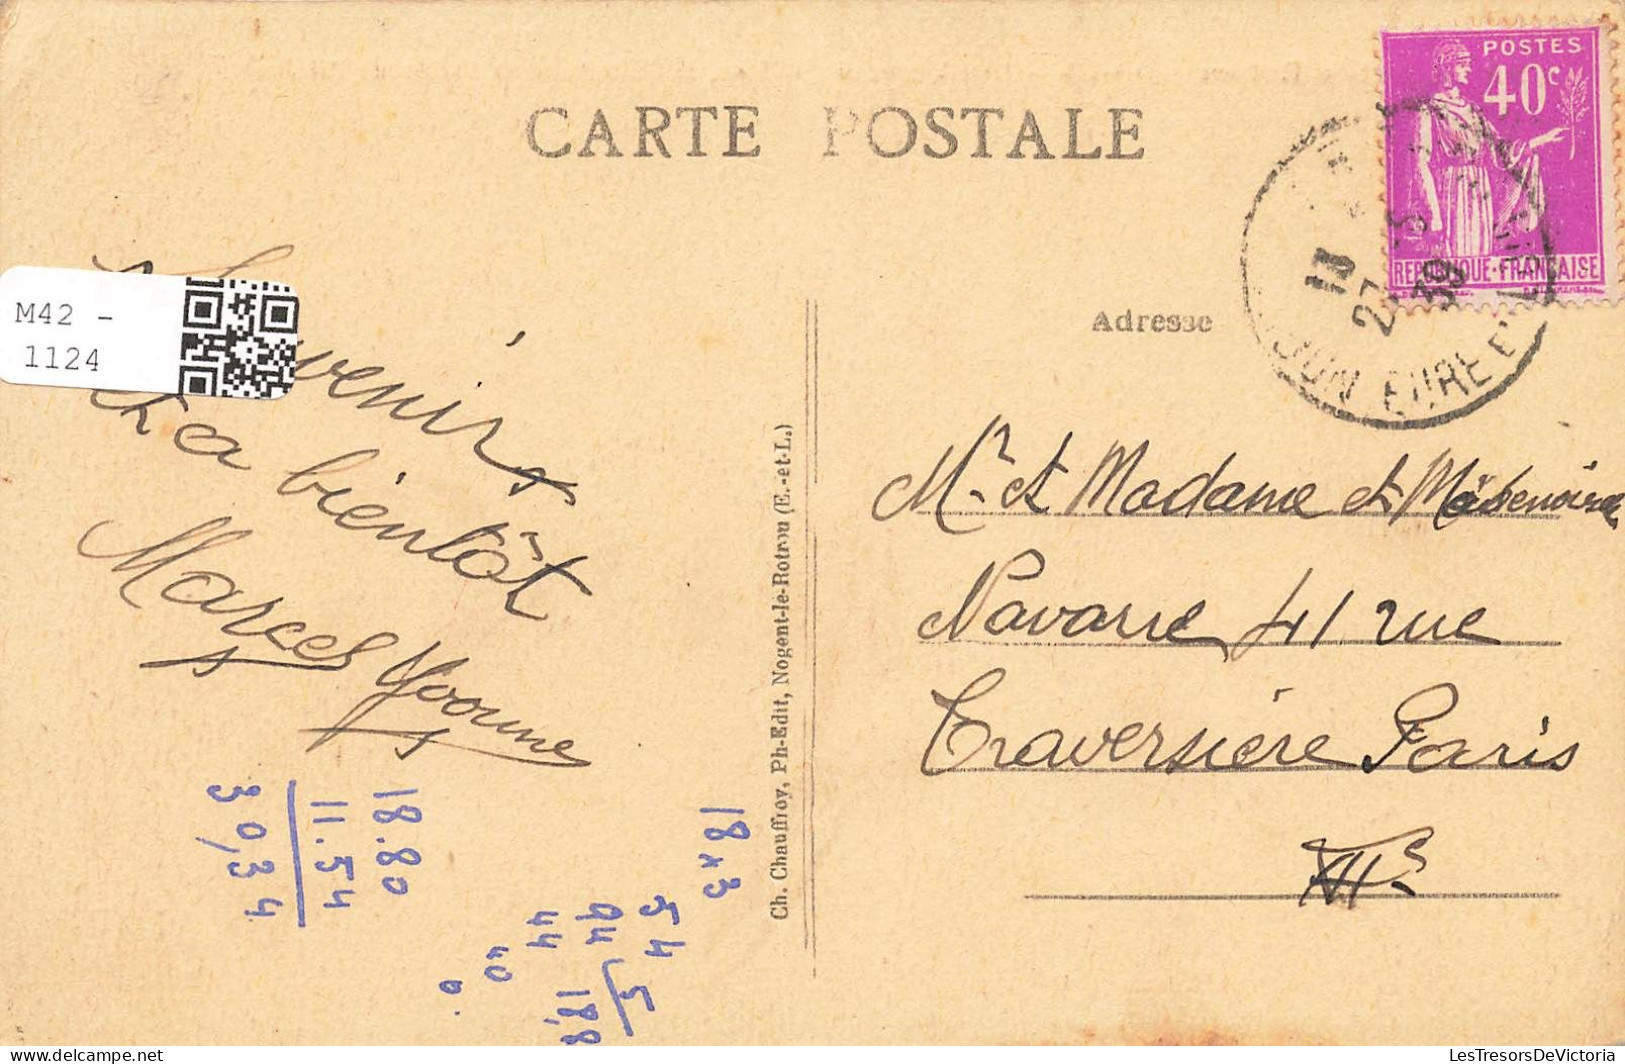 CARTE POSTALE
POSTES
40c
REPUBLIQUE-FRANÇAISE
13
27 - 3
39
EURE ET
M42 -
1124
Adresse
a bientôt
Marcel Yvonne
Ch. Chauffroy, Ph-Edit, Nogent-le-Rotrou (E.-et-L.)
Mr et Madame et
Navarre 41 rue
Traversière Paris
18.80
11.54
30,34
18 x 3
54
94 5
44 18,8
40
0
LesTresorsDeVictoria
LesTresorsDeVictoria